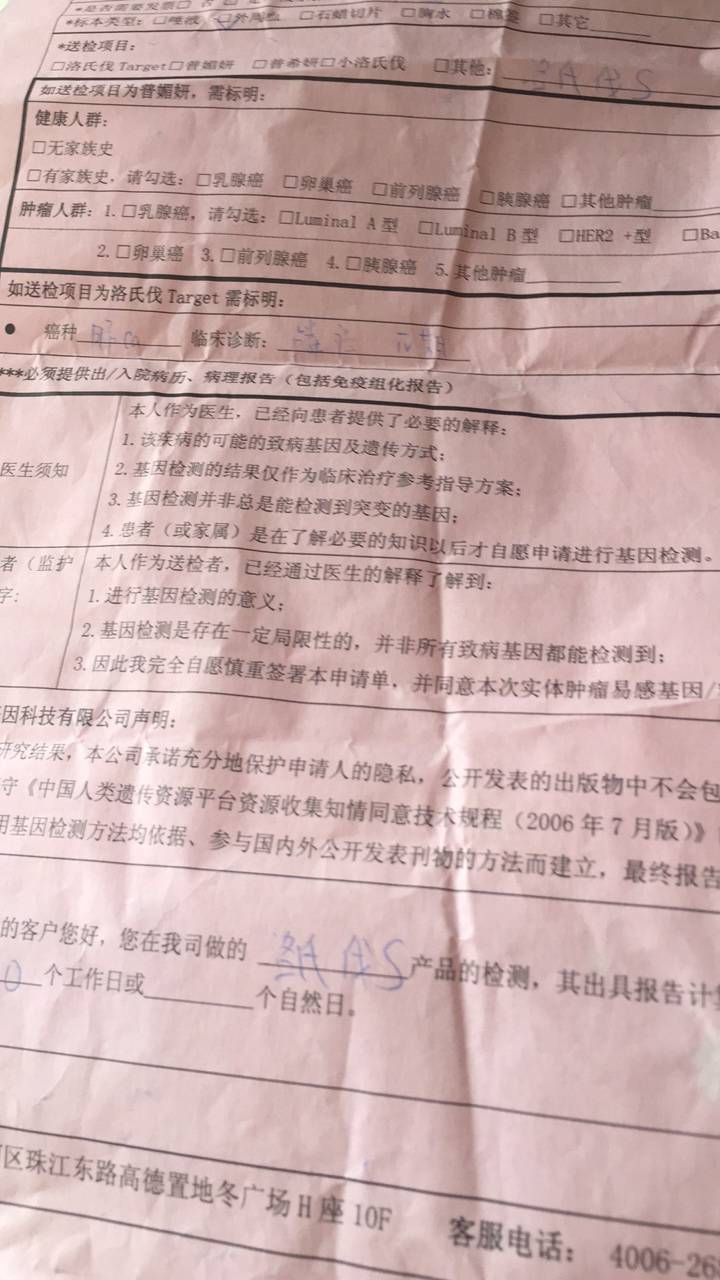 *是否需要发票□ 否
*标本类型：□唾液 □外周血 □石蜡切片 □胸水 □棉签 □其它
*送检项目：
□洛氏伐 Target□普媚妍 □普希妍□小洛氏伐 □其他：
如送检项目为普媚妍，需标明：
健康人群：
□无家族史
□有家族史，请勾选：□乳腺癌 □卵巢癌 □前列腺癌 □胰腺癌 □其他肿瘤
肿瘤人群：1.□乳腺癌，请勾选：□Luminal A 型 □Luminal B 型 □HER2 +型 □Ba
2.□卵巢癌 3.□前列腺癌 4.□胰腺癌 5.其他肿瘤
如送检项目为洛氏伐 Target 需标明：
● 癌种 临床诊断：
***必须提供出/入院病历、病理报告（包括免疫组化报告）
本人作为医生，已经向患者提供了必要的解释：
1.该疾病的可能的致病基因及遗传方式；
医生须知 2.基因检测的结果仅作为临床治疗参考指导方案；
3.基因检测并非总是能检测到突变的基因；
4.患者（或家属）是在了解必要的知识以后才自愿申请进行基因检测。
者（监护 本人作为送检者，已经通过医生的解释了解到：
字： 1.进行基因检测的意义；
2.基因检测是存在一定局限性的，并非所有致病基因都能检测到；
3.因此我完全自愿慎重签署本申请单，并同意本次实体肿瘤易感基因/
因科技有限公司声明：
研究结果，本公司承诺充分地保护申请人的隐私，公开发表的出版物中不会包
守《中国人类遗传资源平台资源收集知情同意技术规程（2006 年 7 月版）》
用基因检测方法均依据、参与国内外公开发表刊物的方法而建立，最终报告
的客户您好，您在我司做的 产品的检测，其出具报告计
0 个工作日或 个自然日。
区珠江东路高德置地冬广场 H 座 10F 客服电话： 4006-26